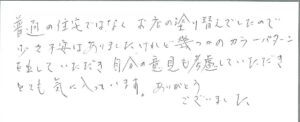 普通の住宅ではなく お店の塗り替えでしたので
少々不安はありましたけれど幾つかのカラーパターン
を出していただき 自分の意見も考慮していただき
とても気に入っています。ありがとう
ございました。